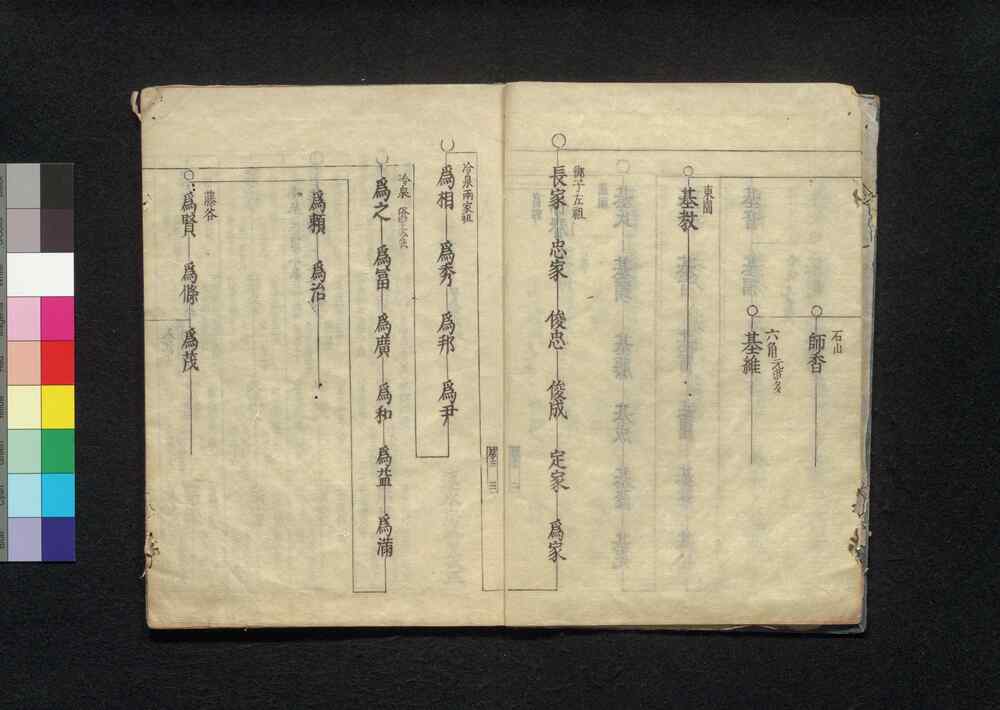 石山
師香
六角元波多
基維
東園
基教
御子左祖
長家 忠家 俊忠 俊成 定家 爲家
冷泉兩家祖
爲相 爲秀 爲邦 爲尹
冷泉
爲之 爲富 爲廣 爲和 爲益 爲滿
爲頼 爲治
藤谷
爲賢 爲條 爲茂